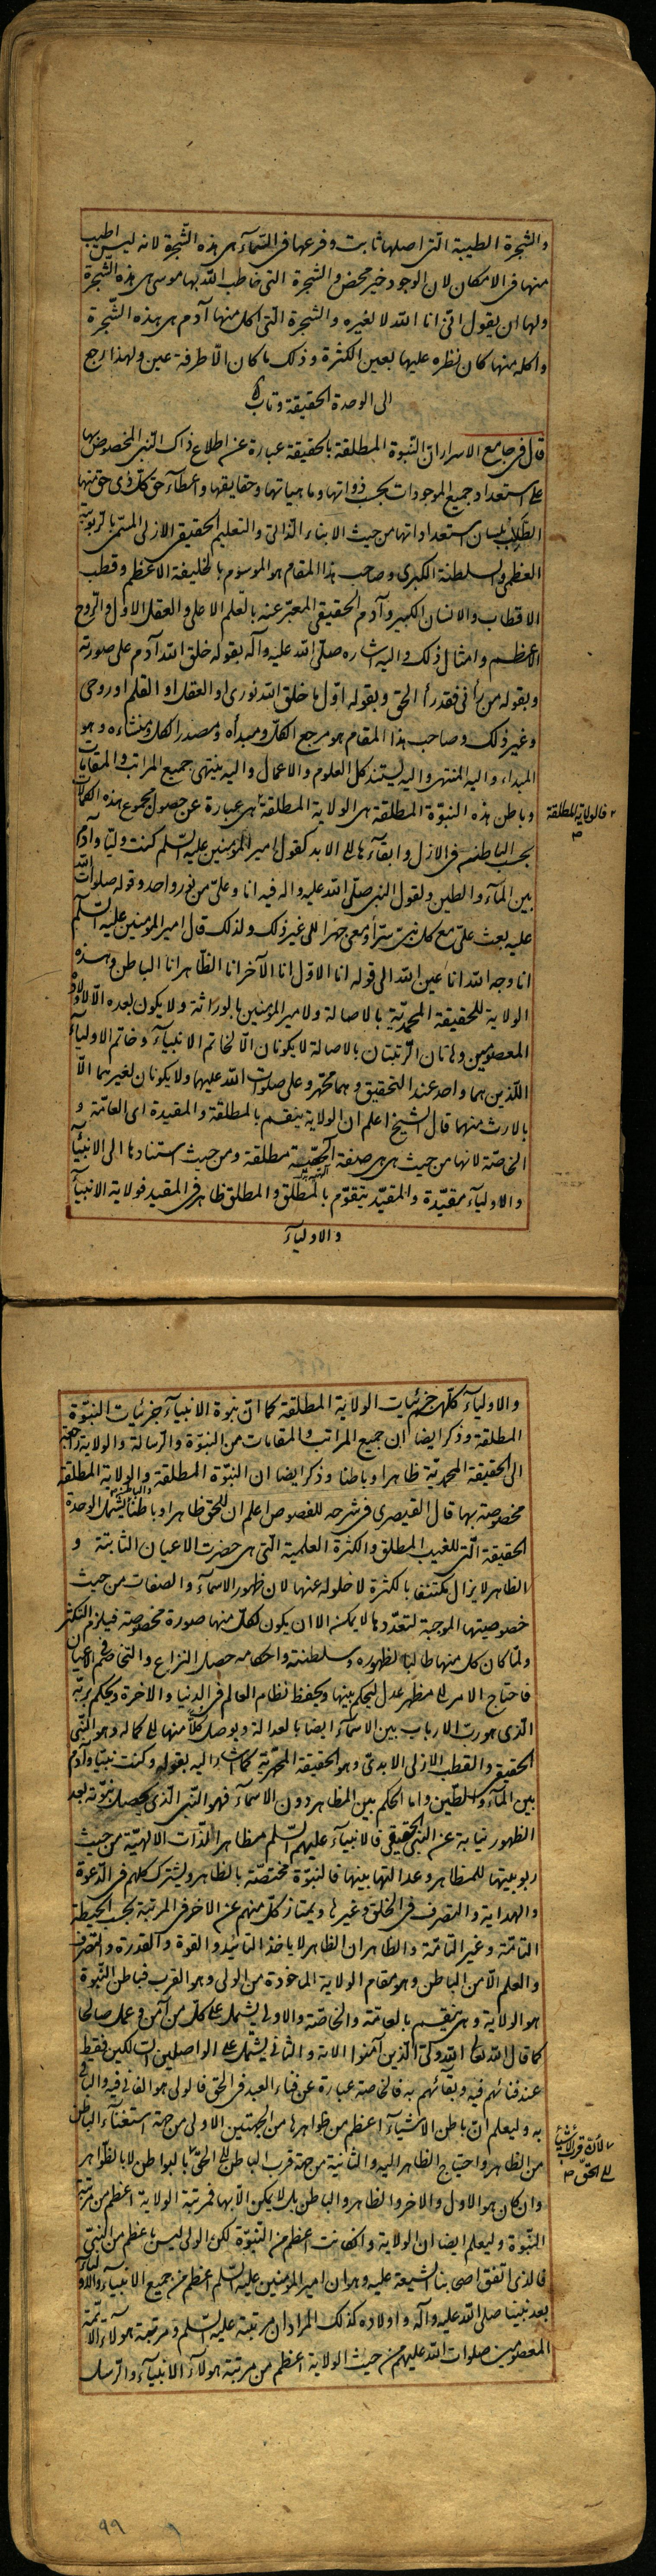 والشجرة الطيبة التى اصلها ثابت وفرعها فى السّمآء هى هذه الشّجرة لانه ليس اطيب
منها فى الامكان لان الوجود خير محض والشجرة التى خاطب اللّه بها موسى هى هذه الشّجرة
ولها ان يقول انّى انا اللّه لا لغيره والشجرة الّتى اكل منها آدم هى هذه الشّجرة
واكله منها كان نظره عليها بعين الكثرة وذلك ما كان الّا طرفة عين ولهذا رجع
الى الوحدة الحقيقة وتاب
قال فى جامع الاسرار ان النّبوة المطلقة بالحقيقة عبارة عن اطلاع ذاك النّبى المخصوص بها
على استعداد جميع الموجودات بحسب ذواتها وماهياتها وحقايقها واعطآء حق كلّ ذى حق منها
الطّلب بلسان استعداداتها من حيث الابناء الذّاتى والتعليم الحقيقى الازلى المسمّى بالرّبوبيّة
العظمى والسلطنة الكبرى وصاحب هذا المقام هو الموسوم بالخليفة الاعظم وقطب
الاقطاب والانسان الكبير وآدم الحقيقى المعبّر عنه بالقلم الاعلى والعقل الاوّل والرّوح
الاعظم وامثال ذلك واليه اشاره صلّى اللّه عليه وآله بقوله خلق اللّه آدم على صورته
وبقوله من رأنى فقد رأ الحق وبقوله اوّل ما خلق اللّه نورى او العقل او القلم او روحى
وغير ذلك وصاحب هذا المقام هو مرجع الكلّ ومبدأه ومصدر الكلّ ومنشاءه وهو
المبداء واليه المنتهى واليه يستند كل العلوم والاعمال واليه ينتهى جميع المراتب والمقامات
وباطن هذه النبوّة المطلقة هى الولاية المطلقة هى عبارة عن حصول مجموع هذه الكمالات
فالولاية المطلقة
بحسب الباطن فى الازل وابقآءها الى الابد كقول امير المؤمنين عليه السّلم كنت وليّا وآدم
بين المآء والطين ولقول النبى صلّى اللّه عليه واله فيه انا وعلىّ من نور واحد وقوله صلوات اللّه
عليه بعث علىّ مع كل نبىّ سرّا ومعى جهرا الى غير ذلك ولذلك قال امير المؤمنين عليه السّلم
انا وجه اللّه انا عين اللّه الى قوله انا الاوّل انا الآخر انا الظّاهر انا الباطن وهذه
الولاية للحقيقة المحمديّة بالاصالة ولامير المؤمنين بالوراثة ولا يكون بعده الّا لاولاده
المعصومين وهاتان الرّتبتان بالاصالة لا يكونان الّا لخاتم الانبيآء وخاتم الاوليآء
اللّذين هما واحد عند التحقيق وهما محمّد وعلى صلوات اللّه عليهما ولا يكونان لغيرهما الّا
بالارث منهما قال الشيخ اعلم ان الولاية ينقسم بالمطلقة والمقيدة اى العامّة و
الخاصّة لانها من حيث هى هى صفة آلهيّة مطلقة ومن حيث استنادها الى الانبيآء
والاوليآء مقيّدة والمقيّد يتقوّم بالمطلق والمطلق ظاهر فى المقيد فولاية الانبيآء
والاوليآء
والاوليآء كلّهم جزئيات الولاية المطلقة كما انّ نبوة الانبيآء جزئيات النبوّة
المطلقة وذكر ايضا ان جميع المراتب والمقامات من النبوّة والرّسالة والولاية راجعة
الى الحقيقة المحمديّة ظاهرا وباطنا وذكر ايضا ان النبوّة المطلقة والولاية المطلقة
مخصوصة بها قال القيصرى فى شرحه للفصوص اعلم ان للحق ظاهرا وباطنا والباطن يشمل الوحدة
الحقيقة الّتى للغيب المطلق والكثرة العلمية الّتى هى حضرت الاعيان الثابتة و
الظاهر لا يزال مكتنفا بالكثرة لا خلو له عنها لان ظهور الاسمآء والصفات من حيث
خصوصيتها الموجبة لتعدّدها لا يمكن الا ان يكون لكلّ منها صورة مخصوصة فيلزم التكثر
ولمّا كان كل منها طالبا لظهوره وسلطنته واحكامه حصل النزاع والتخاصم فى الاعيان
فاحتاج الامر الى مظهر عدل ليحكم بينها ويحفظ نظام العالم فى الدنيا والاخرة ويحكم بربّه
الّذى هو ربّ الارباب بين الاسمآء ايضا بالعدالة ويوصل كلّا منها الى كماله وهو النّبى
الحقيقى والقطب الازلى الابدىّ وهو الحقيقة المحمّدية كما اشار اليه بقوله وكنت نبيّا وآدم
بين المآء والطين واما الحكم بين المظاهر دون الاسمآء فهو النّبى الّذى يحصل نبوّته بعد
الظهور نيابة عن النبى الحقيقى فالانبيآء عليهم السّلم مظاهر الذّات الالهيّة من حيث
ربوبيتها للمظاهر وعدالتها بينها فالنبوّة مختصّة بالظاهر ويشترك كلهم فى الدّعوة
والهداية والتصرف فى الخلق وغيرها ويمتاز كلّ منهم عن الاخر فى المرتبة بحسب الحيطة
التامّة وغير التامّة والظاهر ان الظاهر لا ياخذ التائيد والقوة والقدرة والتصرف
والعلم الّا من الباطن وهو مقام الولاية الماخوذة من الولى وهو القرب فباطن النّبوة
هو الولاية وهى ينقسم بالعامّة والخاصّة والاولى يشمل على كلّ من آمن وعمل صالحا
كما قال اللّه تعالى اللّه ولىّ الّذين آمنوا الاية والثانى يشمل على الواصلين السالكين فقط
عند فنائهم فيه وبقائهم به فالخاصة عبارة عن فناء العبد فى الحق فالولى هو الفانى فيه والباقى
به وليعلم انّ باطن الاشيآء اعظم من ظواهرها من الجهتين الاولى من جهة استغنآء الباطن
من الظاهر واحتياج الظاهر اليه والثانية من جهة قرب الباطن الى الحق بالبواطن لا بالظواهر
لانّه قرب الاشياء
الى الحقّ
وان كان هو الاول والاخر والظاهر والباطن بل لا يكن الّا بها فمرتبة الولاية اعظم من مرتبة
النّبوة وليعلم ايضا ان الولاية وان كانت اعظم من النّبوّة لكن الولى ليس باعظم من النّبىّ
فالذى اتفق اصحابنا الشيعة عليه وهو ان امير المؤمنين عليه السّلم اعظم من جميع الانبيآء والاوليآء
بعد نبيّنا صلى اللّه عليه وآله واولاده كذلك المراد ان مرتبته عليه السّلم ومرتبة هؤلآء الائمّة
المعصومين صلوات اللّه عليهم من حيث الولاية اعظم من مرتبة هولآء الانبيآء والرّسل
٩٩